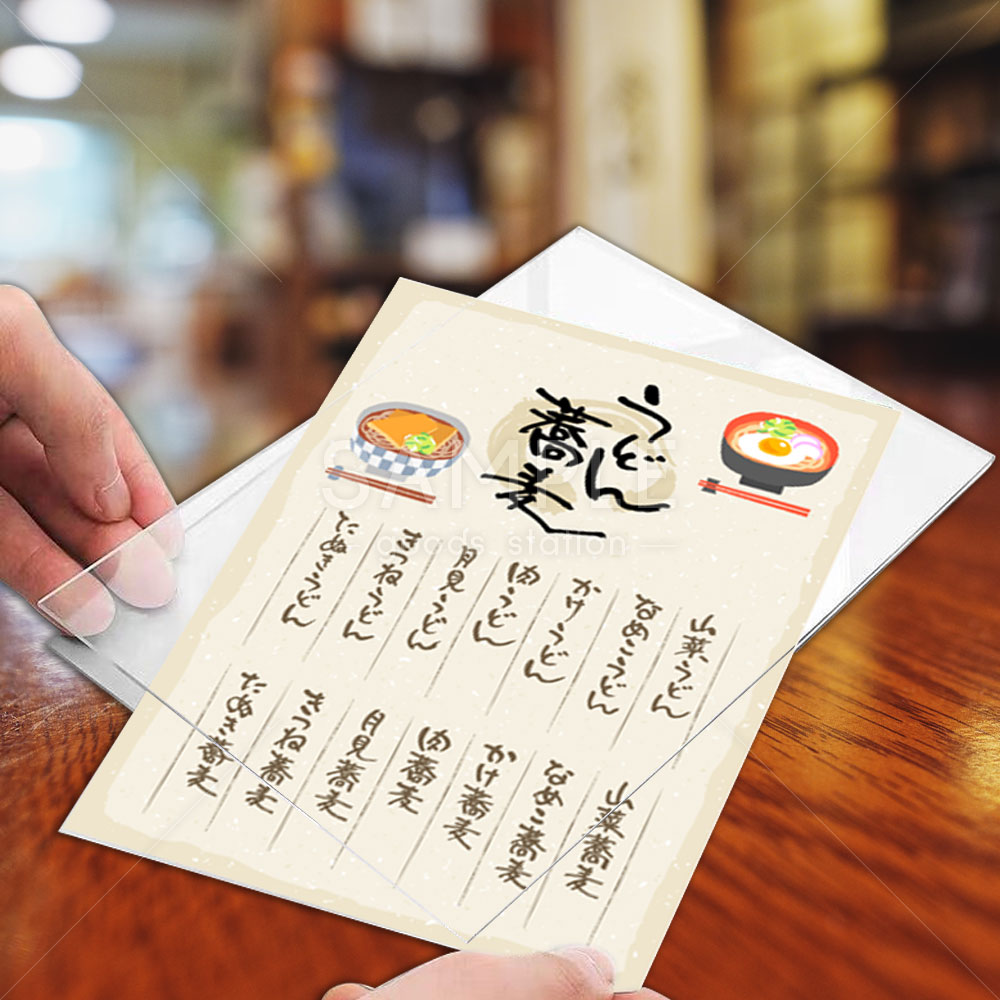 うどん
蕎麦
山菜うどん
なめこうどん
かけうどん
肉うどん
月見うどん
きつねうどん
たぬきうどん
山菜蕎麦
なめこ蕎麦
かけ蕎麦
肉蕎麦
月見蕎麦
きつね蕎麦
たぬき蕎麦
SAMPLE
goods station